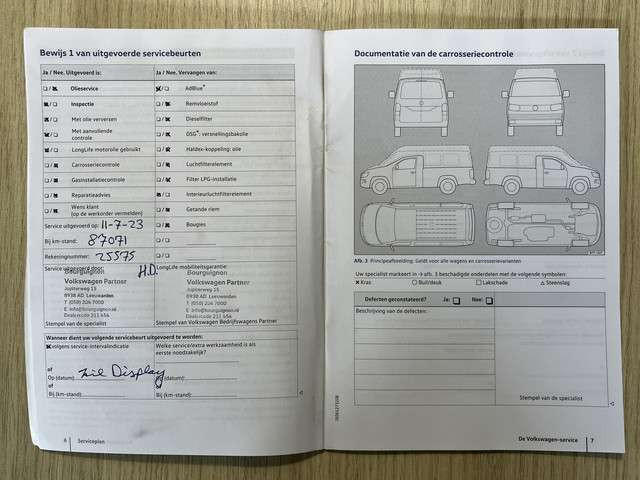 Bewijs 1 van uitgevoerde servicebeurten
Ja / Nee. Uitgevoerd is:
Ja / Nee. Vervangen van:
Olieservice
AdBlue
Inspectie
Remvloeistof
Met olie verversen
Dieselfilter
Met aanvullende controle
DSG®: versnellingsbakolie
LongLife motorolie gebruikt
Haldex-koppeling: olie
Carrosseriecontrole
Luchtfilterelement
Gasinstallatiecontrole
Filter LPG-installatie
Reparatieadvies
Interieurluchtfilterelement
Wens klant
(op de werkorder vermelden)
Getande riem
Service uitgevoerd op: 11-7-23
Bougies
Bij km-stand: 87071
Rekeningnummer: 25575
Service uitgevoerd door:
H.D.
LongLife mobiliteitsgarantie:
Bourguignon
Volkswagen Partner
Jupiterweg 15
8938 AD Leeuwarden
T (058) 204 7000
E info@bourguignon.nl
Dealercode 211 454
Stempel van de specialist
Bourguignon
Volkswagen Partner
Jupiterweg 15
8938 AD Leeuwarden
T (058) 204 7000
E info@bourguignon.nl
Dealercode 211 454
Stempel van Volkswagen Bedrijfswagens Partner
Wanneer dient uw volgende servicebeurt uitgevoerd te worden:
volgens service-intervalindicatie
Welke service/extra werkzaamheid is als
eerste noodzakelijk?
of
Op (datum): zie Display
Op (datum):
of
Bij (km-stand):
Bij (km-stand):
6 Serviceplan
Documentatie van de carrosseriecontrole
Afb. 3 Principeafbeelding: Geldt voor alle wagens en carrosserievarianten
Uw specialist markeert in → afb. 3 beschadigde onderdelen met de volgende symbolen:
× Kras
○ Buil/deuk
□ Lakschade
△ Steenslag
Defecten geconstateerd? Ja: Nee:
Beschrijving van de defecten:
Stempel van de specialist
De Volkswagen-service 7